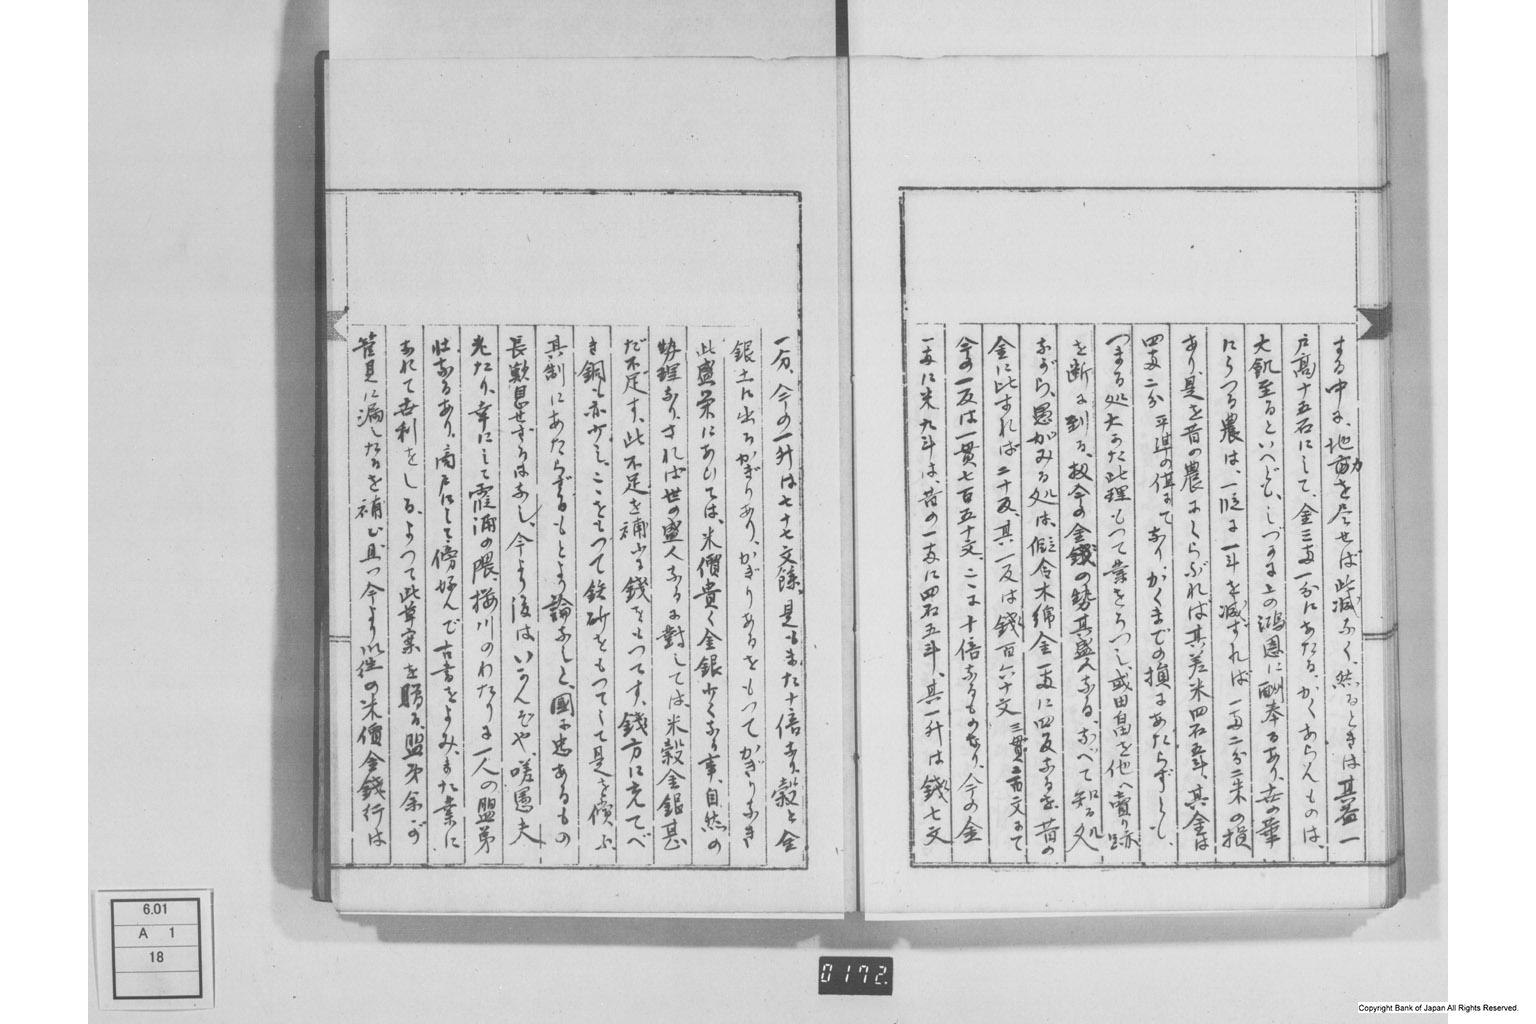 する中に、地力を尽せば此減なく、然るときは其益一
戸高十五石にして、金三両一分にあたる、かくあらんものは、
大飢至るといへども、しづかに上の鴻恩に酬奉るあり、去の華
にうつる農は、一反に一斗を減ずれば一両二分二朱の損
あり、是を昔の農にくらぶれば其差米四石五斗、其金は
四両二分 平準の価にて なり、かくまでの損にあたらずとも、
つまる処大かた此理もつて業をうつし、或田畠を他へ賣り跡
を断に到る、扨今の金銭の勢其盛んなる、なべて知る処
ながら、愚がみる処は、仮令木綿金一両に四反なるを昔の
金に比すれば二十反、其一反は銭百六十文 三貫二百文にて
今の一反は一貫七百五十文、ここに十倍なるものなり、今の金
一両に米九斗は、昔の一両に四石五斗、其一升は銭七文
一分、今の一升は七十七文餘、是もまた十倍なり、穀と金
銀土に出るかぎりあり、かぎりあるをもつてかぎりなき
此盛栄にあひては、米價貴く金銀少くなる事、自然の
勢理なり、されば世の盛んなるに對しては、米穀金銀甚
だ不足す、此不足を補ふに銭をもつてす、銭方に充てべ
き銅も亦少し、ここをもつて鉄砂をもつてして是を償ふ
其制にあたらざるもとより論なしと、國に忠あるもの
長歎息せざるはなし、今より後はいかんぞや、嗟愚夫
老たり、幸にして霞浦の隈、桜川のわたりに一人の盟弟
壮なるあり、商戸にして傍好んで古書をよみ、また業に
なれて去利をしる、よつて此草案を贈る、盟弟余が
管見に漏したるを補ひ且つ今より以往の米價金銭行は
6.01
A 1
18
0172
Copyright Bank of Japan All Rights Reserved.